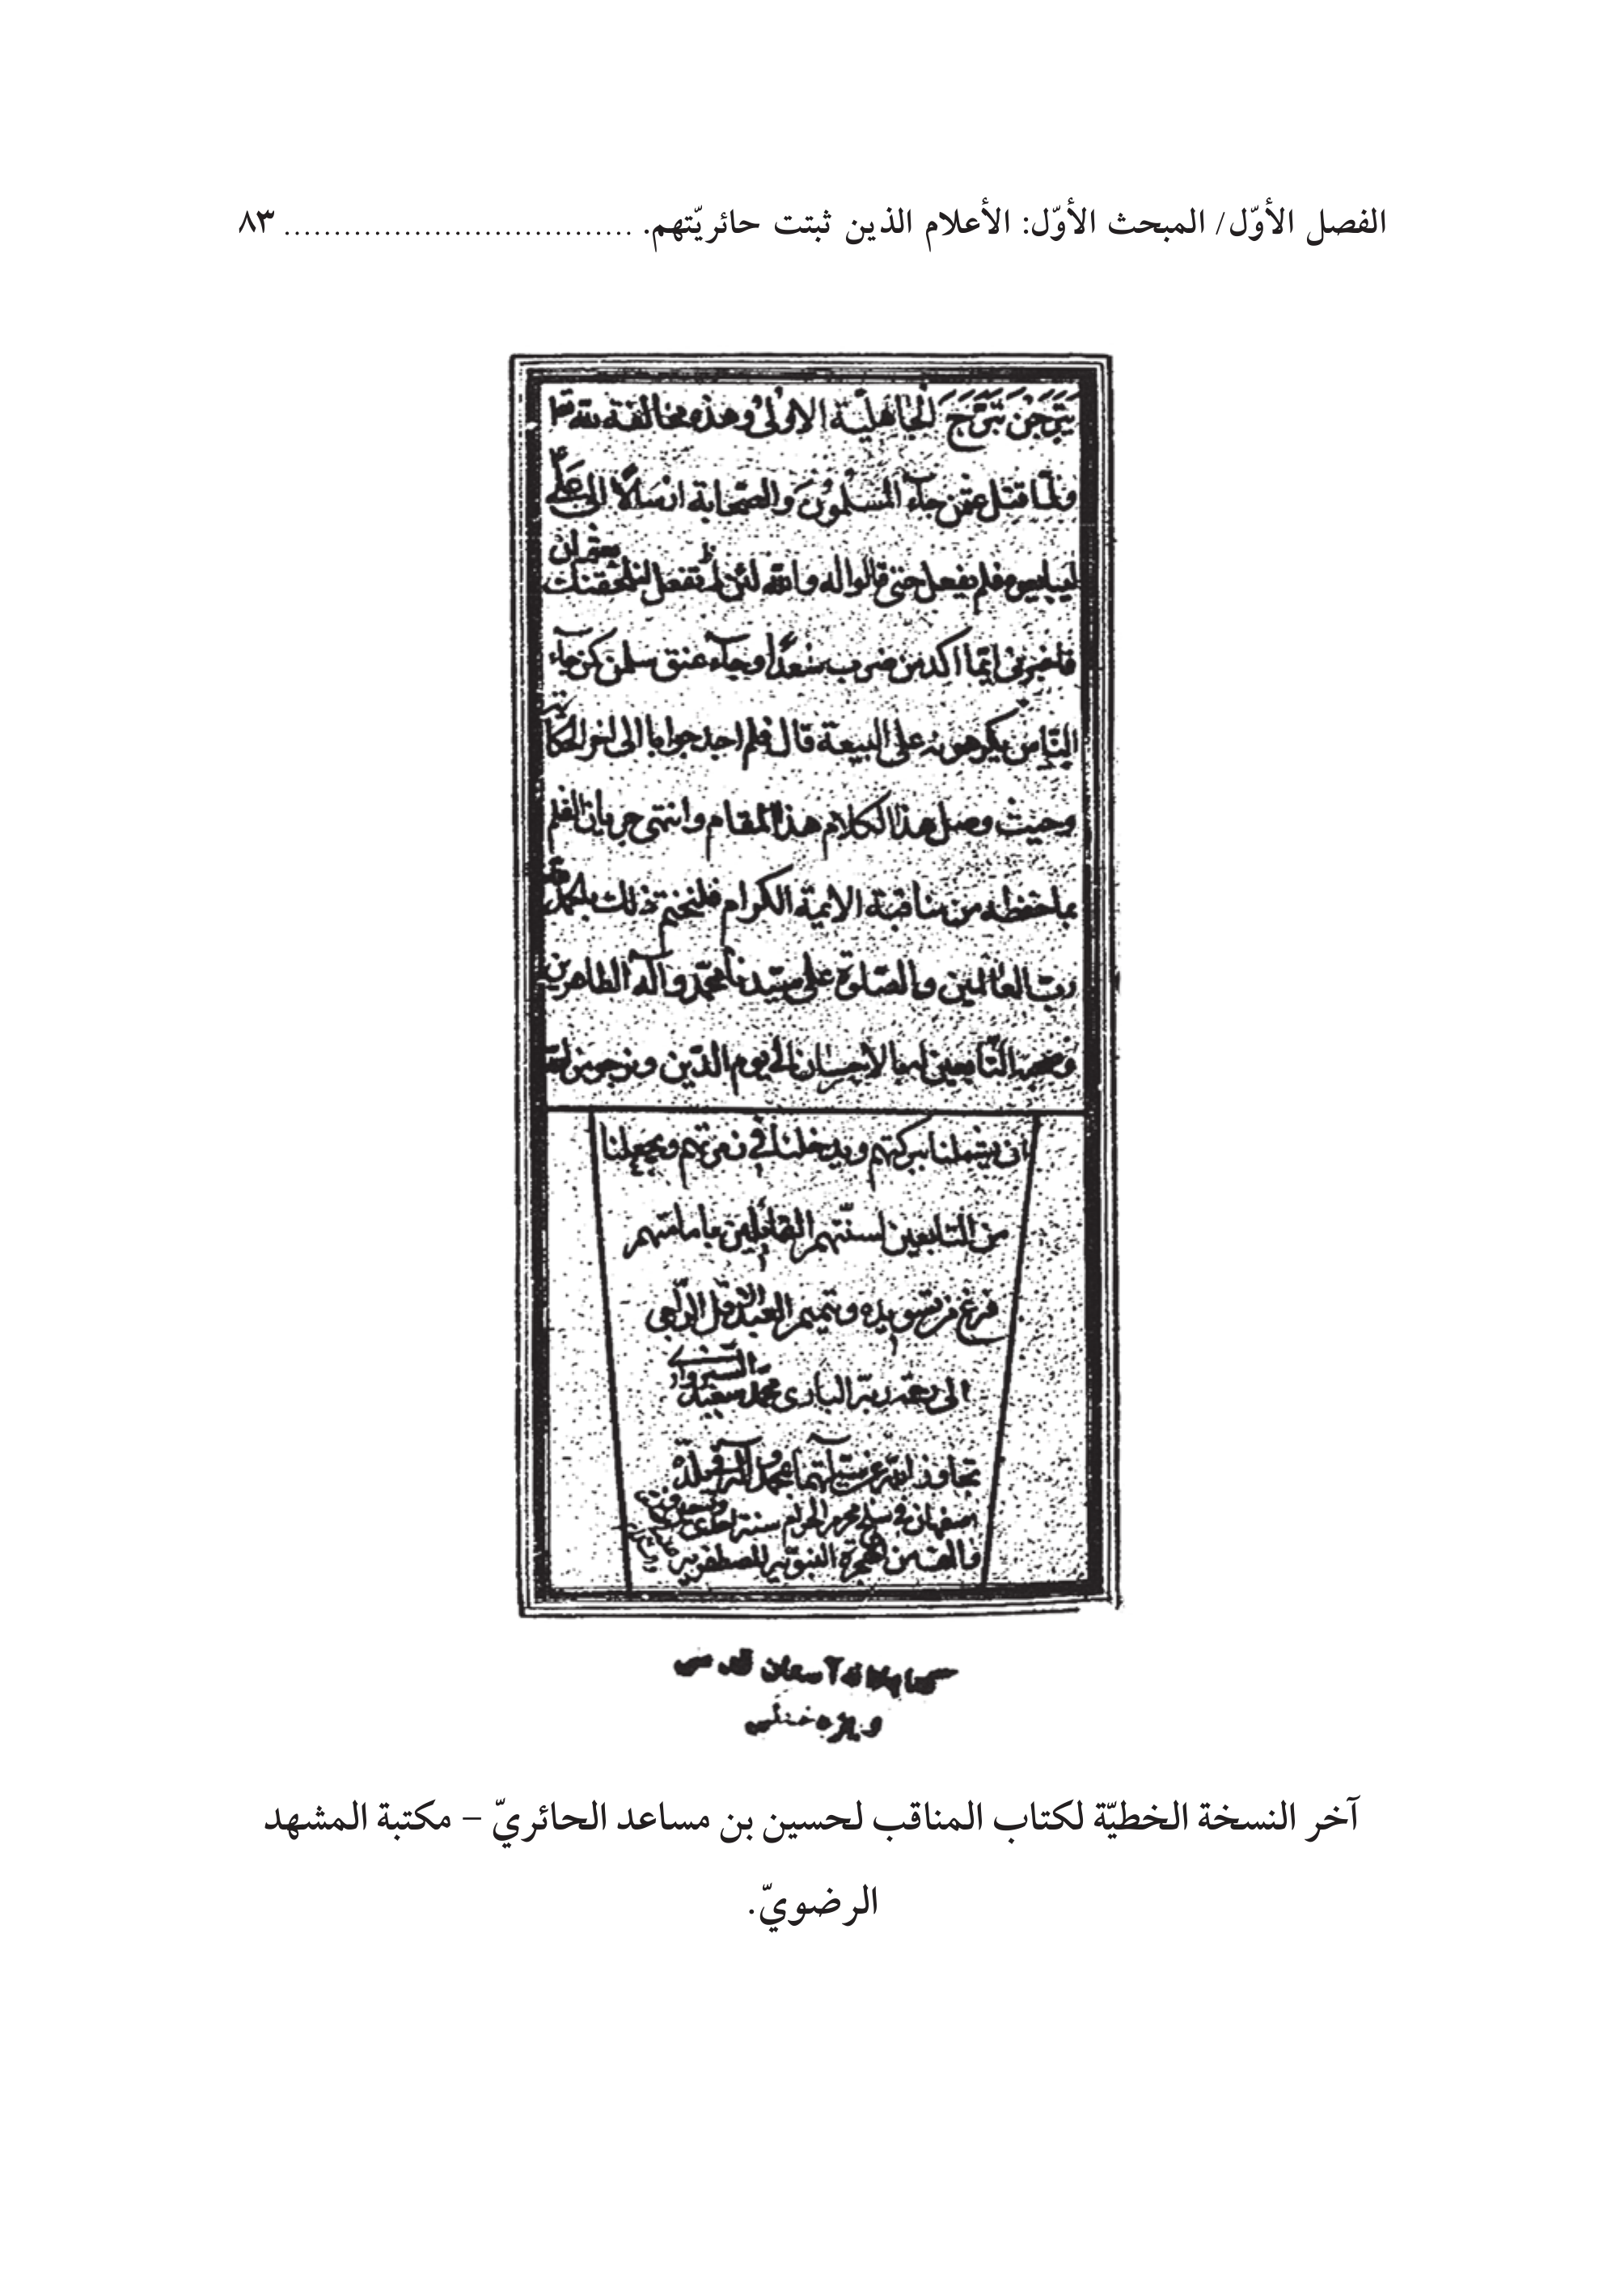 الفصل الأوّل/ المبحث الأوّل: الأعلام الذين ثبتت حائريّتهم. ................................ ٨٣
يتبرّجن تَبَرُّجَ الجاهليّة الاولى وهذه مخالفة لله
ولمّا قتل عثمن جاء المسلمون والصحابة ارسالًا الى علي
ليبايعوه فلم يفعل حتى قالوا له والله لئن لم تفعل لنلحقنك بعثمان
فاخبرني ايّما اكد من ضرب سعدًا وجاء عنق سلمن كمن جاء
النّاس يكرهونه على البيعة قال فلم احد جوابا الى اخر الحكاية
وحيث وصل هذا الكلام هذا المقام وانتهى جريان القلم
بما حفظه من مناقبة الائمة الكرام فلنختم ذلك بالحمد لله
ربّ العالمين والصّلوة على سيّدنا محمّد وآله الطاهرين
التّابعين لهم بالاحسان الى يوم الدّين ونرجو من الله
ان يشملنا ببركتهم ويدخلنا في زمرتهم ويجعلنا
من التابعين لسنّتهم القائلين بامامتهم
فرغ من تسويده وتتميم العبد الاقل الراجي
الى رحمة ربه الباري محمّد سعيد السبزواري
تجاوز الله عن سيّئاتهما بمحمد وآله في بلدة
اصفهان في سلخ محرم الحرام سنة احدى
والف من الهجرة النبوية المصطفوية
كتابخانه آستان قدس
ويژه خطى
آخر النسخة الخطيّة لكتاب المناقب لحسين بن مساعد الحائريّ – مكتبة المشهد
الرضويّ.